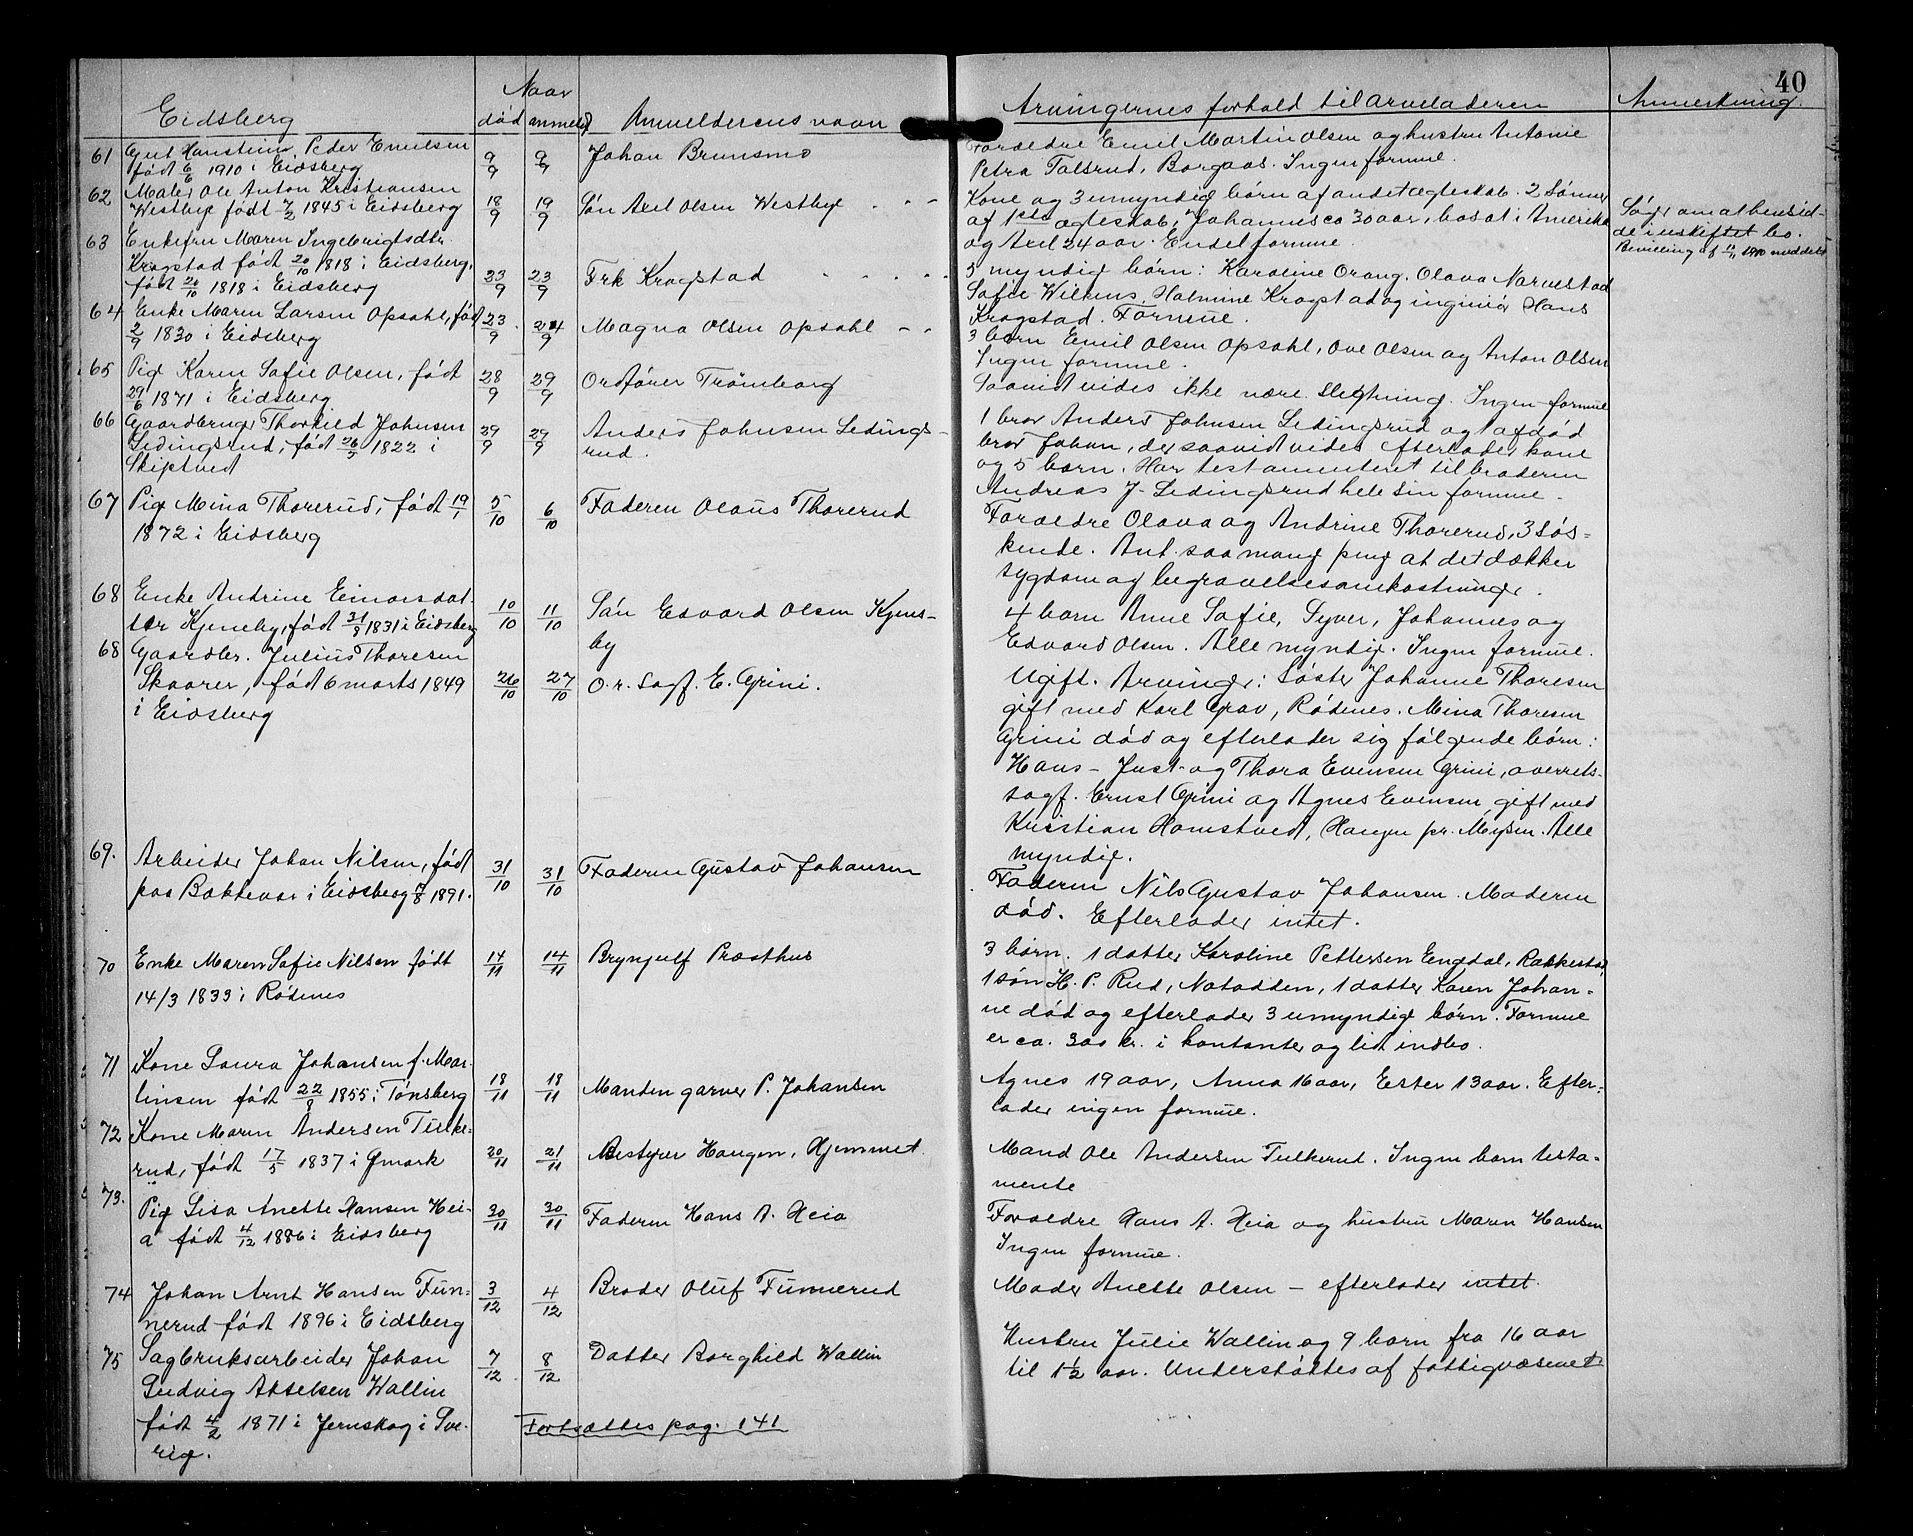 40
Naar
Eidsberg død anmeldt Anmelderens navn Arvingernes forhold til arveladeren Anmerkning
61 Gut Hanstein Peder Emilsen 9/9 9/9 Johan Brunsmo Forældre Emil Martin Olsen og hustru Antonie
født 6/6 1910 i Eidsberg Petra Talsrud, Borgaas. Ingen formue.
62 Maler Ole Anton Kristiansen Kone og 3 umyndige børn af andet ægteskab. 2 Sønner
Westbye født 7/2 1845 i Eidsberg 18/9 19/9 Søn Axel Olsen Westbye af 1ste ægteskab, Johannes ca 30 aar, bosat i Amerika Søger om at hensid-
og Axel 24 aar. Endel formue. de i uskiftet bo.
Bevilling af 11/11 1910 meddelt
63 Enkefru Maren Ingebrigtsdtr.
Kragstad født 20/10 1818 i Eidsberg, 23/9 23/9 Frk Kragstad 5 myndige børn: Karoline Orang, Olava Narvestad
født 20/10 1818 i Eidsberg Sofie Wilkens, Halmine Kragstad og ingeniør Hans
Kragstad. Formue.
64 Enke Maren Larsen Opsahl, født 23/9 24/9 Magna Olsen Opsahl
2/9 1830 i Eidsberg 3 børn Emil Olsen Opsahl, Ove Olsen og Anton Olsen
Ingen formue.
65 Pige Karen Sofie Olsen, født 28/9 29/9 Ordfører Trømborg Saavidt vides ikke nære slegtning. Ingen formue
29/6 1871 i Eidsberg
66 Gaardbruger Thorkild Johnsen 29/9 29/9 Anders Johnsen Ledings- 1 bror Anders Johnsen Ledingsrud og 1 afdød
Ledingsrud, født 26/5 1822 i rud. bror Johan, der saavidt vides efterlader kone
Skiptved og 5 børn. Har testamenteret til broderen
Andreas J. Ledingsrud hele sin formue.
67 Pige Mina Thorerud, født 19/1 5/10 6/10 Faderen Olaus Thorerud Forældre Olava og Andrine Thorerud, 3 Søs-
1872 i Eidsberg kende. Ant. saa mange penge at det dækker
sygdom og begravelsesomkostninger.
68 Enke Andrine Einarsdat- 10/10 11/10 Søn Edvard Olsen Kjens- 4 børn Anne Sofie, Syver, Johannes og
ter Kjensby, født 31/8 1831 i Eidsberg by Edvard Olsen. Alle myndige. Ingen formue.
68 Gaardbr. Julius Thoresen
Skaarer, født 6 marts 1849 26/10 27/10 O.r. Sagf. E. Grini. Ugift. Arvinger: Søster Johanne Thoresen
i Eidsberg gift med Karl Grav, Rødenes. Mina Thoresen
Grini død og efterlader sig følgende børn:
Hans- Just- og Thora Evensen Grini, overrets-
sagf. Ernst Grini og Agnes Evensen gift med
Kristian Homstvedt, Haugen pr. Mysen. Alle
myndige.
69. Arbeider Johan Nilsen, født 31/10 31/10 Faderen Gustav Johansen Faderen Nils Gustav Johansen. Moderen
paa Bakkevar i Eidsberg 17/8 1891. død. Efterlader intet.
70 Enke Maren Sofie Nilsen født 14/11 14/11 Brynjulf Præsthus 3 børn. 1 datter Karoline Pettersen Engdal, Rakkestad,
14/3 1833 i Rødenes 1 søn H. P. Rud, Notodden, 1 datter Karen Johan-
ne død og efterlader 3 umyndige børn. Formue
er ca. 300 kr. i kontanter og lidt indbo.
71 Kone Laura Johansen f. Mar- 18/11 18/11 Manden garver P. Johansen Agnes 19 aar, Anna 16 aar, Ester 13 aar. Efter-
tinsen født 22/8 1855 i Tønsberg lader ingen formue.
72 Kone Maren Andersen Tulke- 20/11 21/11 Bestyrer Haugen, Hjemmet. Mand Ole Andersen Tulkerud. Ingen børn testa-
rud, født 17/5 1837 i Ømark mente
73. Pige Lisa Anette Hansen Hei- 30/11 30/11 Faderen Hans A. Heia Forældre Hans A. Heia og hustru Maren Hansen
a født 4/12 1886 i Eidsberg Ingen formue.
74 Johan Arnt Hansen Fun- 3/12 4/12 Broder Oluf Funnerud Moder Anette Olsen – efterlader intet.
nerud født 1896 i Eidsberg
75 Sagbruksarbeider Johan 7/12 8/12 Datter Borghild Wallin Hustru Julie Wallin og 9 børn fra 16 aar
Ludvig Akselsen Wallin til 1 1/2 aar. Understøttes af fattigvæsenet
født 4/2 1871 i Jernskog i Sve-
rige.
Fortsættes pag. 141